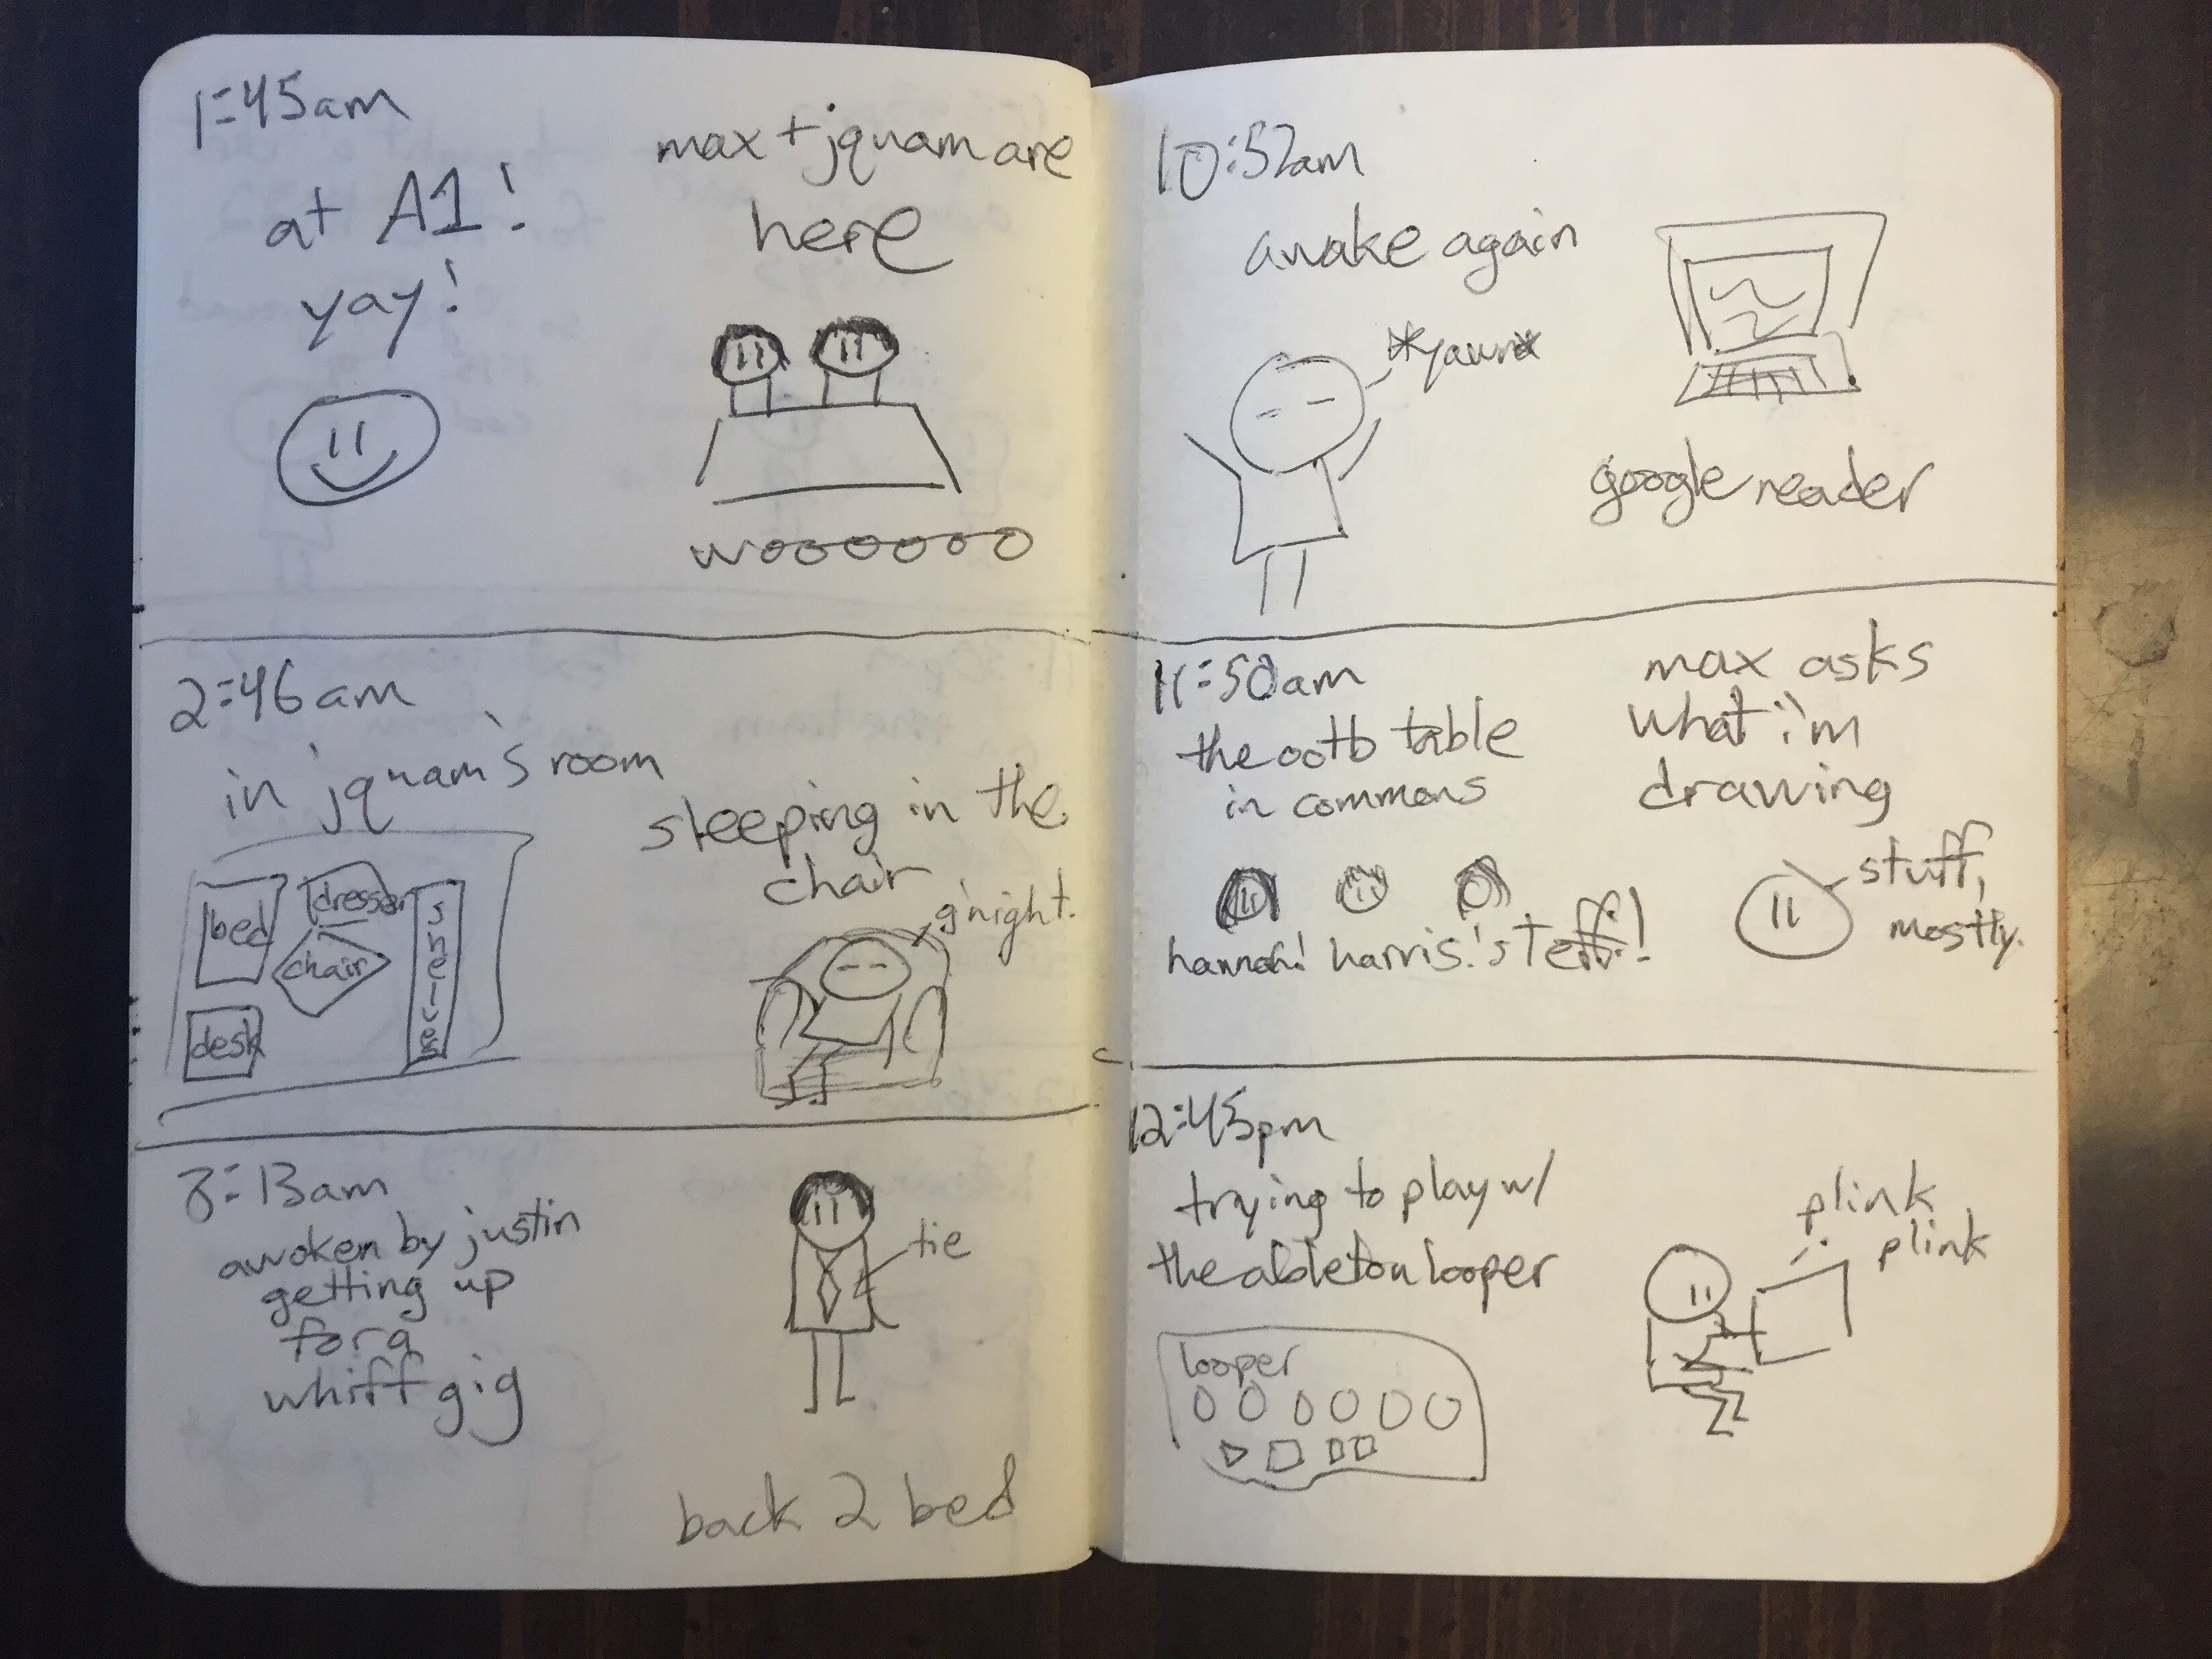 1:45am
at A1!
yay!
max + jquam are
here
wooooooo
2:46am
in jquam's room
bed
dresser
chair
shelves
desk
sleeping in the
chair
g'night.
8:13am
awoken by justin
getting up
for a
whiff gig
tie
back 2 bed
10:52am
awake again
*yawn*
google reader
11:50am
the ootb table
in commons
hannah! harris! steff!
max asks
what i'm
drawing
stuff,
mostly.
12:45pm
trying to play w/
the ableton looper
looper
plink
plink